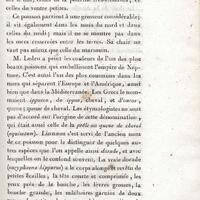 celles du ventre petites.
Ce poisson parvient à une grosseur considérable;
il vit également dans les mers du nord et dans
celles du midi; mais il ne se montre pas dans
les mers resserrées entre les terres. Sa chair ne
vaut pas mieux que celle du maroum.
M. Leders a peint les couleurs de l'un des plus
beaux poissons qui embellissent l'empire de Nep-
tune. C'est aussi l'un des plus communs dans les
mers qui séparent l'Europe et l'Amérique, aussi
bien que dans la Méditerranée. Les Grecs le nom-
moient hippurus, de ippos, cheval, et d'ouros,
queue; queue de cheval. Les étymologistes ne sont
pas d'accord sur l'origine de cette dénomination,
qui étoit aussi celle de la prêle ou queue de cheval
(equisetum). Linnæus s'est servi de l'ancien nom
de ce poisson pour le distinguer de quelques au-
tres espèces que l'on appelle aussi dorade, et avec
lesquelles on le confond souvent. La vraie dorade
(coryphæna hippurus) a le corps alongé et revêtu de
petites écailles; la tête courte et comprimée, les
yeux près de la bouche, les lèvres grosses, la
bouche grande, les mâchoires garnies de deux